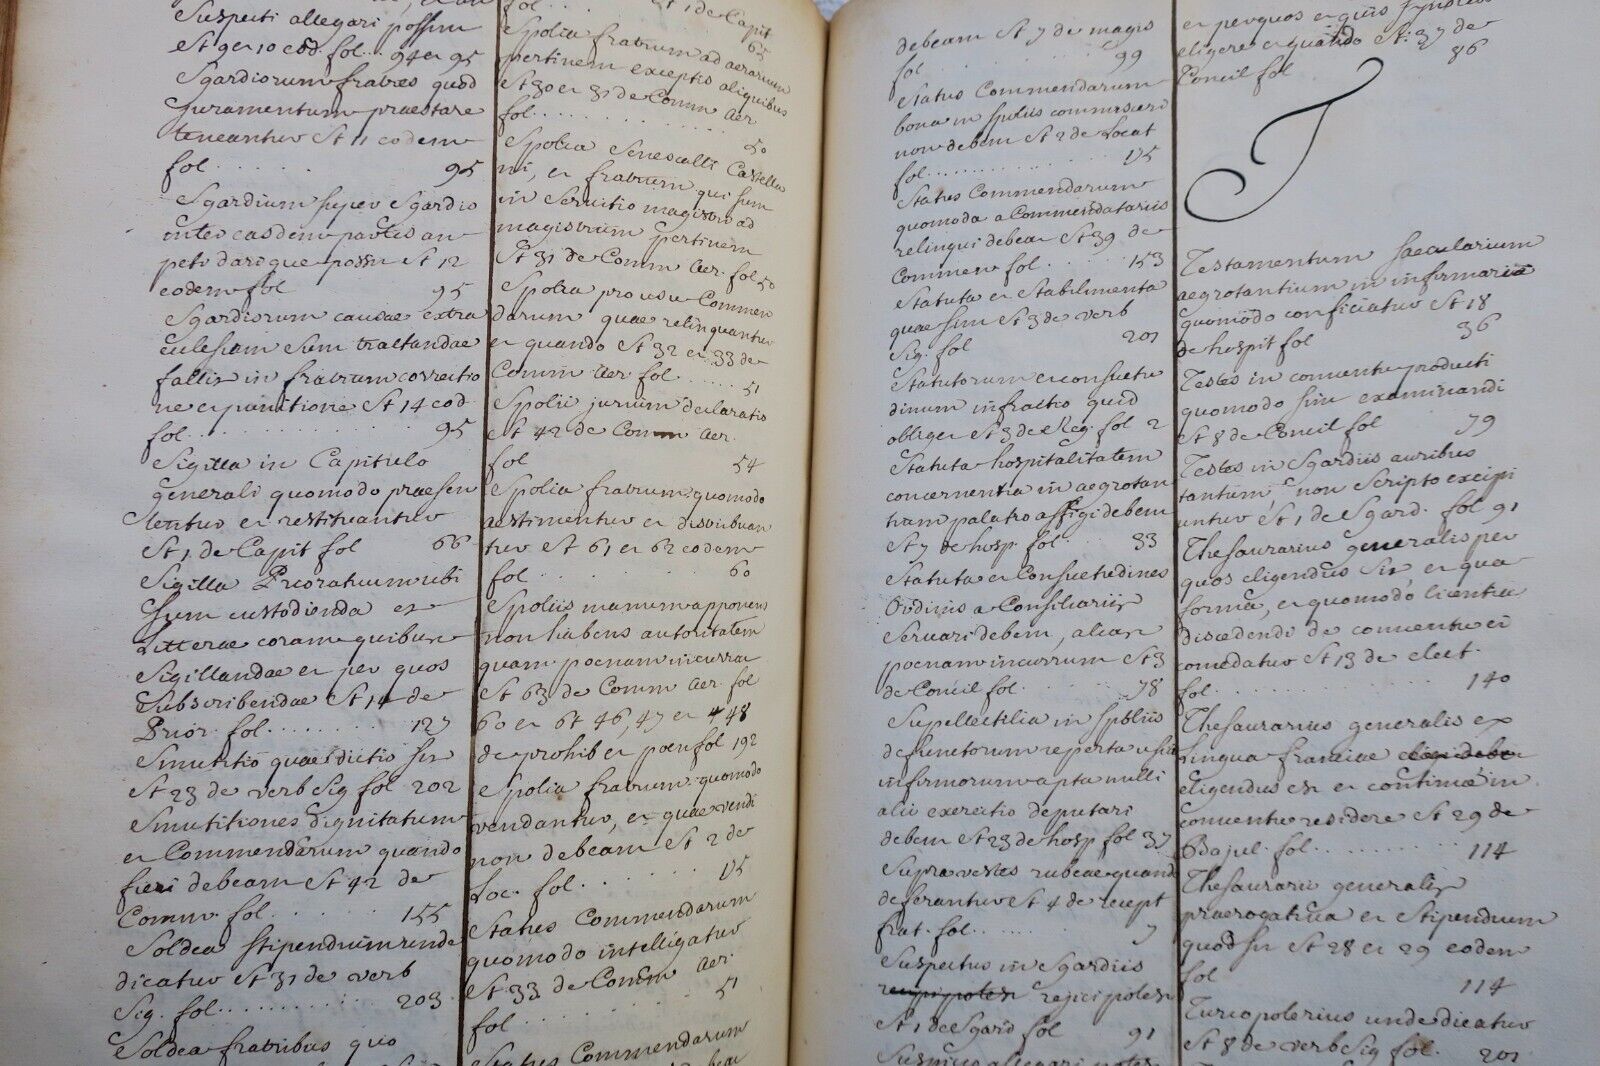 Suspecti allegari possim
St 9 er 10 eod. fol. . 94 er 95
Sgardiorum fratres quod
Juramentum praestare
teneantur St 11 codem
fol. . . . . . 95
Sgardium super Sgardio
inter easdem partes an
peti darique possit St 12
eodem fol 95
Sgardiorum causae extra
eclesiam sunt tractandae
fallis in fratrum correctio
ne er punitione St 14 eod
fol. . . . . . . . . 95
Sigilla in Capitulo
generali quomodo praesen
tentur er restituantur
St 1 de Capit fol 66
Sigilla Prioratuum ubi
sum custodienda er
Litterae coram quibus
Sigillandae er per quos
Subscribendae St 14 de
Prior. fol. . . . . . . 127
Smutitio quae dictio sir
St 23 de verb Sig fol 202
Smutitiones dignitatum
er Commendarum quando
fieri debeam St 42 de
Comm. fol. . . . . . 155
Soldea stipendium unde
dicatur St 31 de verb
Sig. fol. . . . . . . 203
Soldea fratribus quo
fol. de Capit
65
Spolia fratrum ad aerarium
pertinem exceptis aliquibus
St 30 er 31 de Comm Aer
fol. . . . . . . . . 50
Spolia Senescalli Castella
ni, er fratrum qui sum
in Servitio magistri ad
magistrum pertinem
St 31 de Comm Aer. fol 50
Spolia pro usu Commen
darum quae relinquantur
er quando St 32 er 33 de
Comm Aer. fol. . . . . . 51
Spolii jurium declaratio
St 42 de Comm Aer.
fol 54
Spolia fratrum quomodo
aestimentur er distribuan
tur St 61 er 62 eodem
fol. . . . . . 60
Spoliis manum apponens
non habens autoritatem
quam poenam incurrat
St 63 de Comm Aer. fol
60 er St 46, 47 er 48
de prohib er poen fol 192
Spolia fratrum quomodo
vendantur, er quae vendi
non debeam St 2 de
Loc. fol. . . . . . 175
Status Commendarum
quomodo intelligatur
St 33 de Comm Aer.
fol. . . . . . . 51
Status Commendarum
debeam St 7 de magis
fol. . . . . . . 99
Status Commendarum
bona in spoliis commisceri
non debem St 2 de Locat
fol. . . . . . . . . 175
Status Commendarum
quomodo a Commendatariis
relinqui debear St 39 de
Commen fol. . . . . 153
Statuta er Stabilimenta
quae sim St 3 de verb
Sig. fol 201
Statutorum er consuetu
dinum infractio quid
obliger St 3 de Reg fol 2
Statuta hospitalitatem
concernentia in aegrotan
tium palatio affigi debem
St 7 de hosp. fol. . . 33
Statuta er Consuetudines
Ordinis a Consiliariis
Servari debem, alias
poenam incurrum St 3
de Concil fol. . . . . 78
Supellectilia in spoliis
defunctorum reperta usui
infirmorum apta nulli
alii exercitio deputari
debem St 23 de hosp fol 37
Supravestes rubeae quand
deferantur St 4 de recept
frat. fol. . . . . . 7
Suspectus in Sgardiis
rejici potest
St 1 de Sgard fol 91
er per quos er quis
eligere er quando St. 37 de
Concil fol 86
T
Testamentum saecularium
aegrotantium in infirmaria
quomodo conficiatur St 18
de hospit fol 36
Testes in conventu producti
quomodo sint examinandi
St 8 de Concil fol 79
Testes in Sgardiis auribus
tantum, non Scripto excipi
untur St 1 de Sgard. fol 91
Thesaurarius generalis per
quos eligendus sir er qua
forma, er quomodo licentia
discedendi de conventu ei
concedatur St 13 de elect.
fol. . . . . . . . . 140
Thesaurarius generalis ex
Lingua franciae
eligendus est er continue in
conventu residere St 29 de
Bajul. fol. . . . . . . 114
Thesaurarii generalis
praerogativa er Stipendium
quod sir St 28 er 29 eodem
fol 114
Turcopolerius unde dicatur
St 8 de verb Sig fol. 201